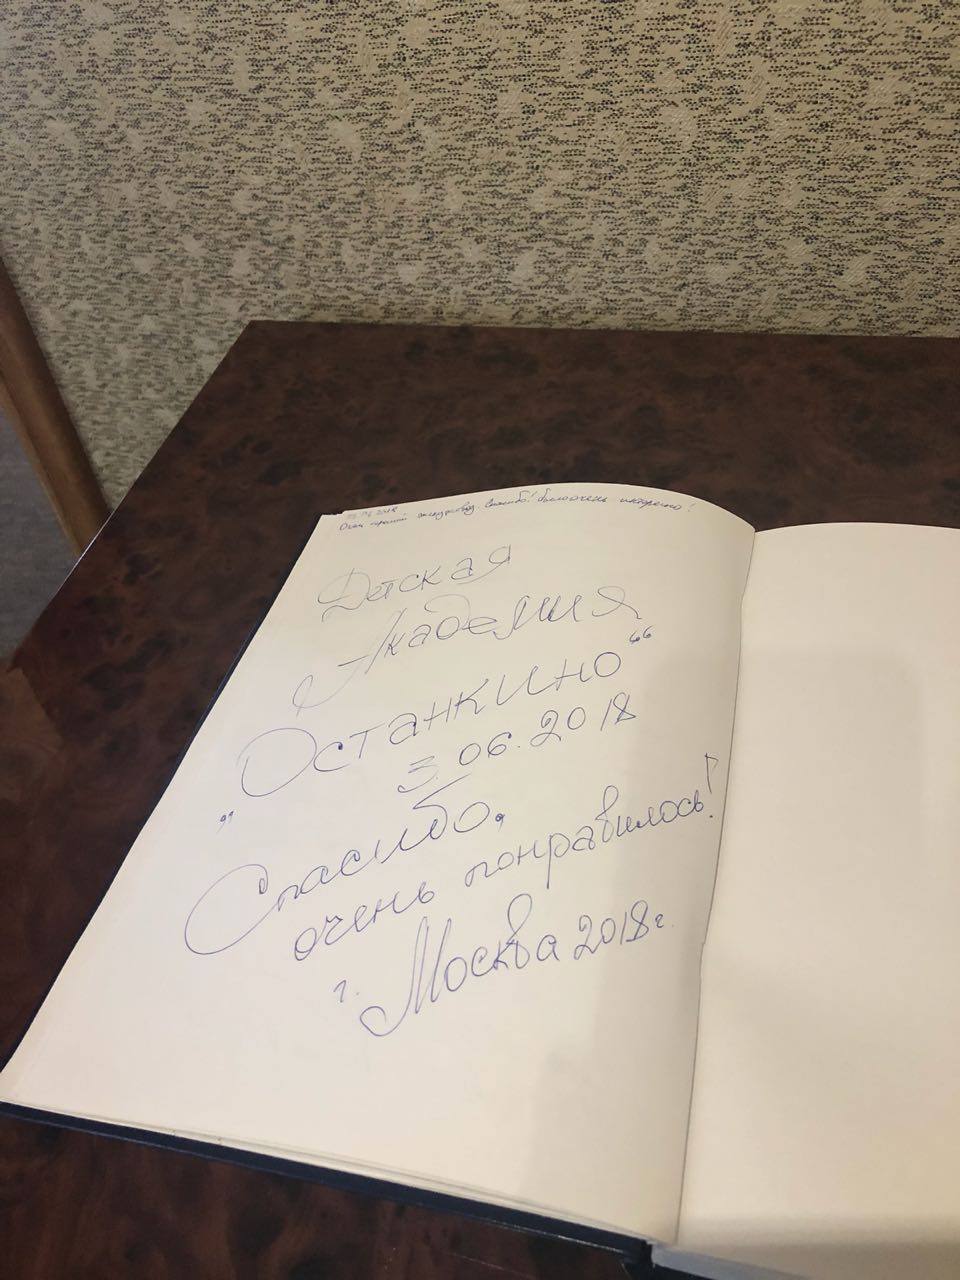 Очень хороший экскурсовод спасибо! было очень интересно!
Детская
Академия
"Останкино"
3.06.2018
Спасибо,
очень понравилось!
г. Москва 2018г.